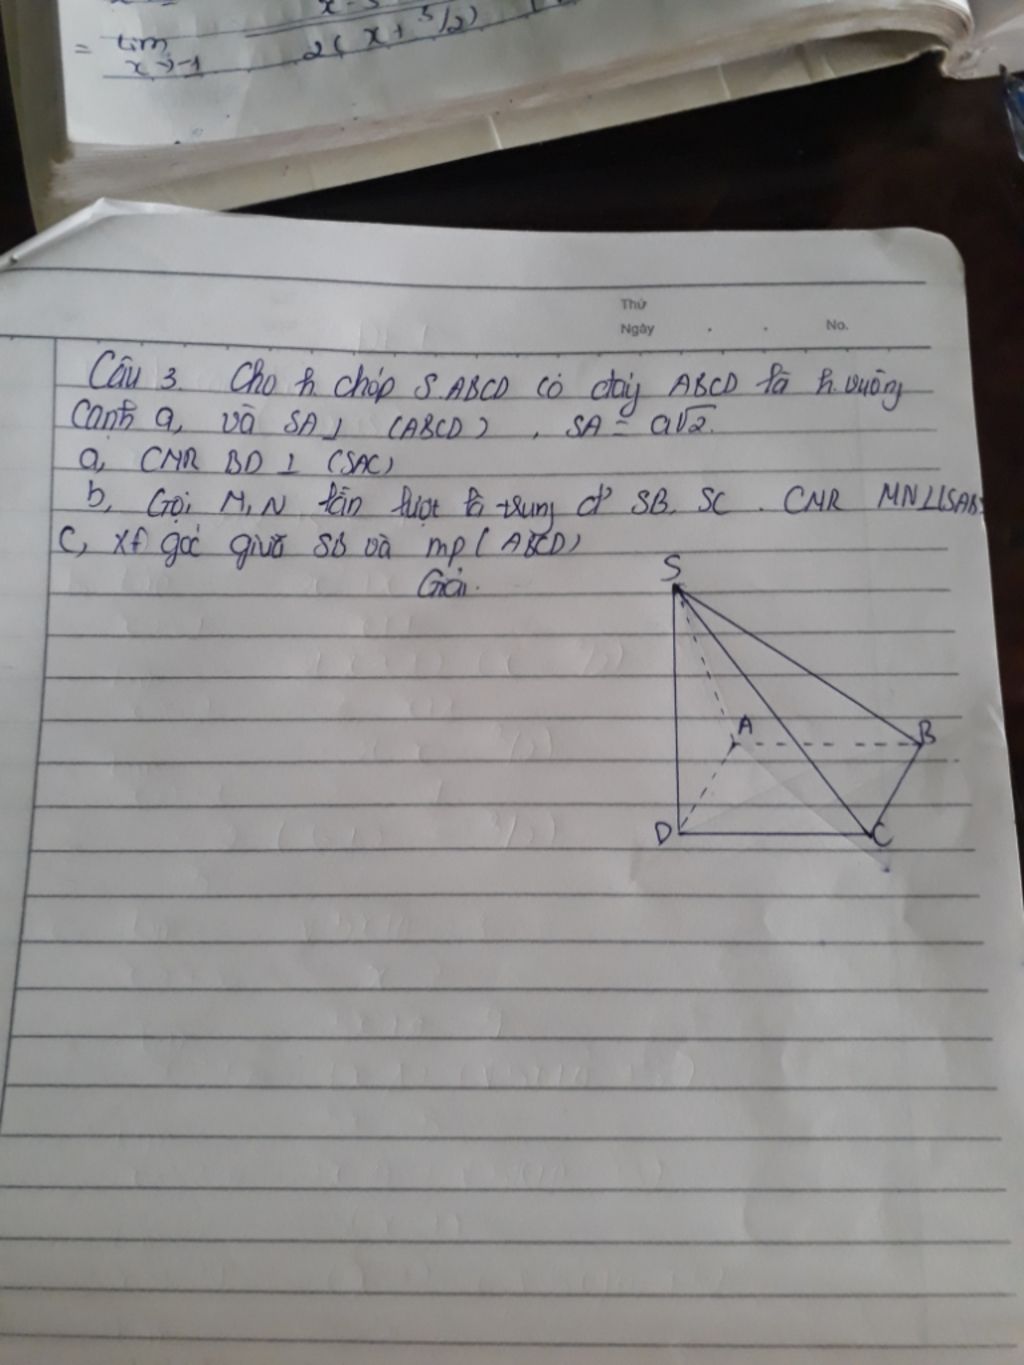 = lim
x→-1
2(x+5/2)
Thứ
Ngày . . No.
Câu 3. Cho h chóp S.ABCD có đáy ABCD là h vuông
cạnh a, và SA⊥ (ABCD), SA = a√2.
a, CMR BD ⊥ (SAC)
b, Gọi M,N lần lượt là trung đ' SB, SC. CMR MN⊥(SAB)
c, xđ góc giữa SB và mp(ABCD)
Giải.
S
A
B
D
C